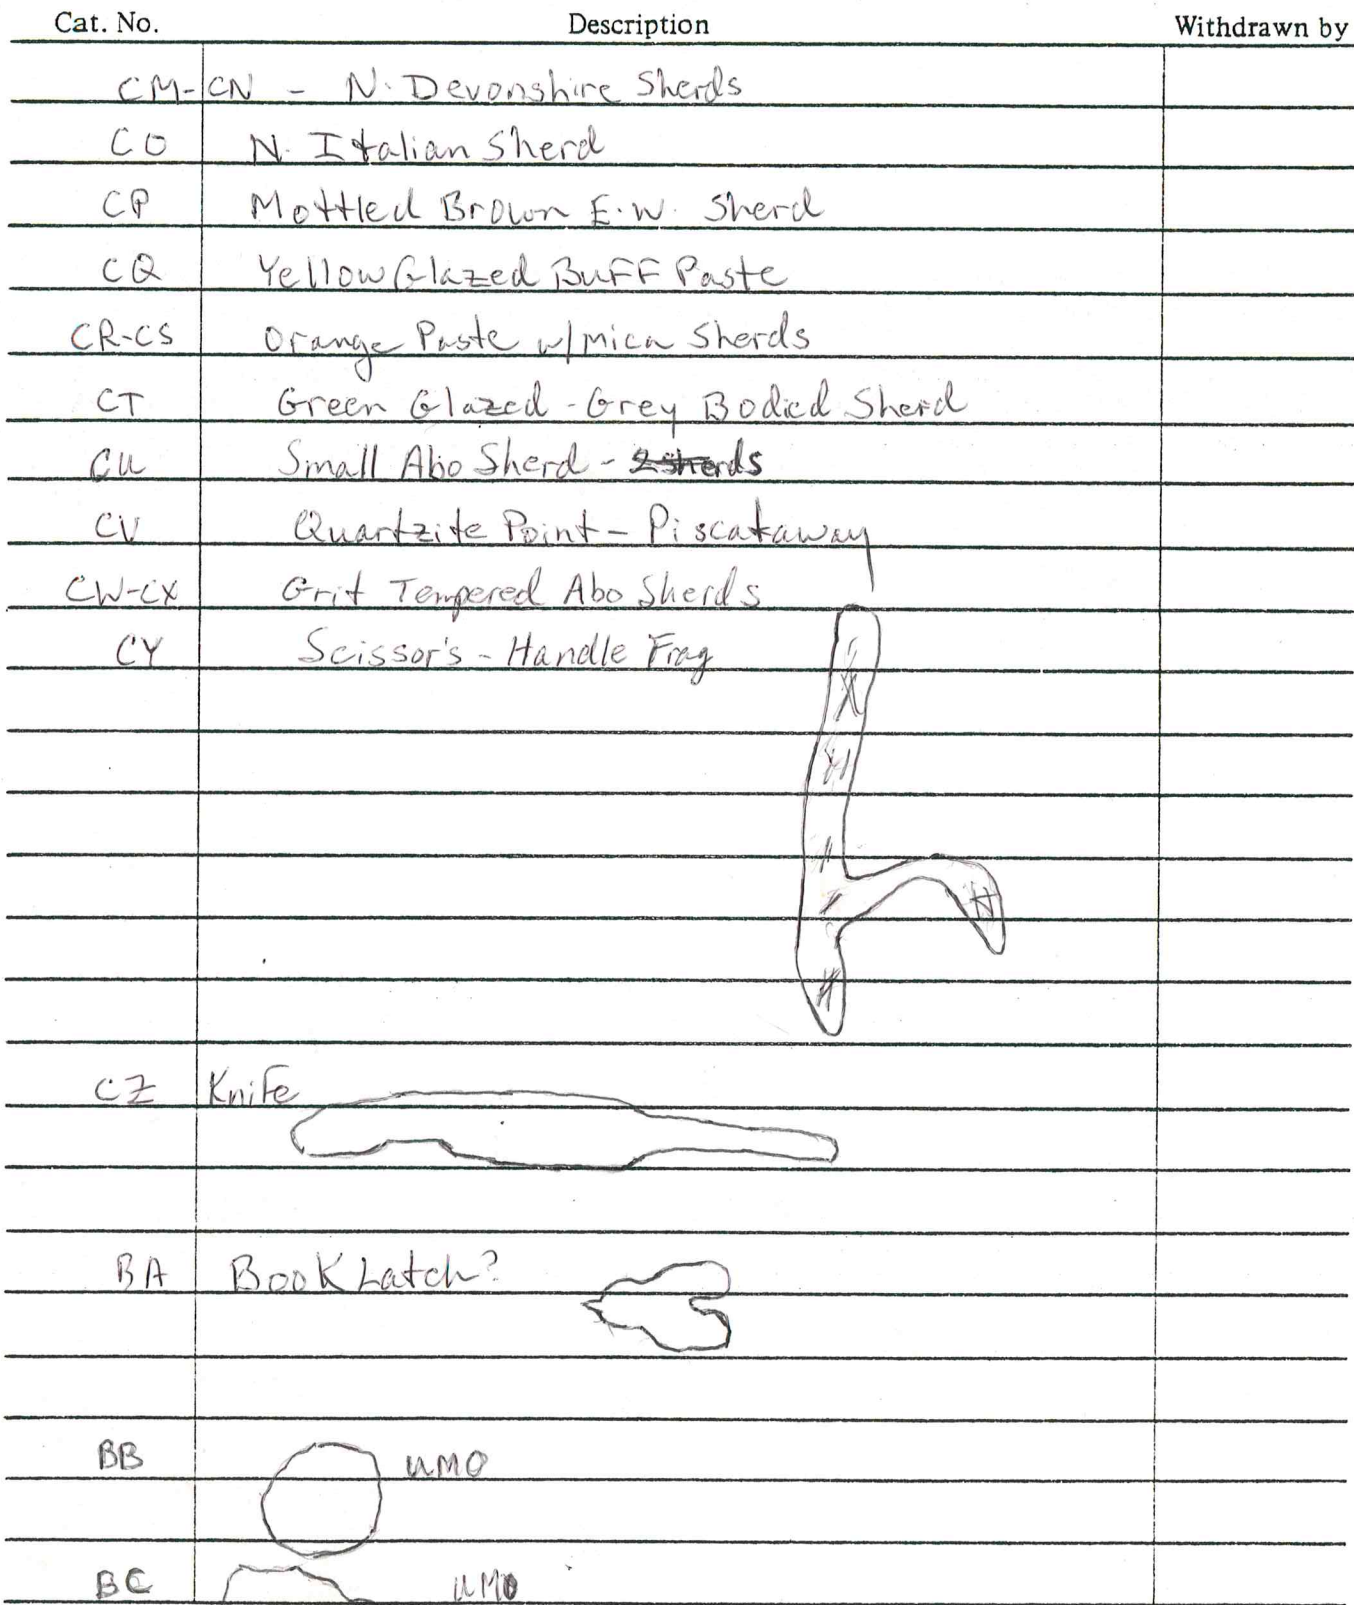 Cat. No. Description Withdrawn by
CM-CN - N. Devonshire Sherds
CO N. Italian Sherd
CP Mottled Brown E.W. Sherd
CQ Yellow Glazed Buff Paste
CR-CS Orange Paste w/mica Sherds
CT Green Glazed - Grey Bodied Sherd
CU Small Abo Sherd - 2 sherds
CV Quartzite Point - Piscataway
CW-CX Grit Tempered Abo Sherds
CY Scissor's - Handle Frag
CZ Knife
BA Book Latch?
BB UMO
BC UMO